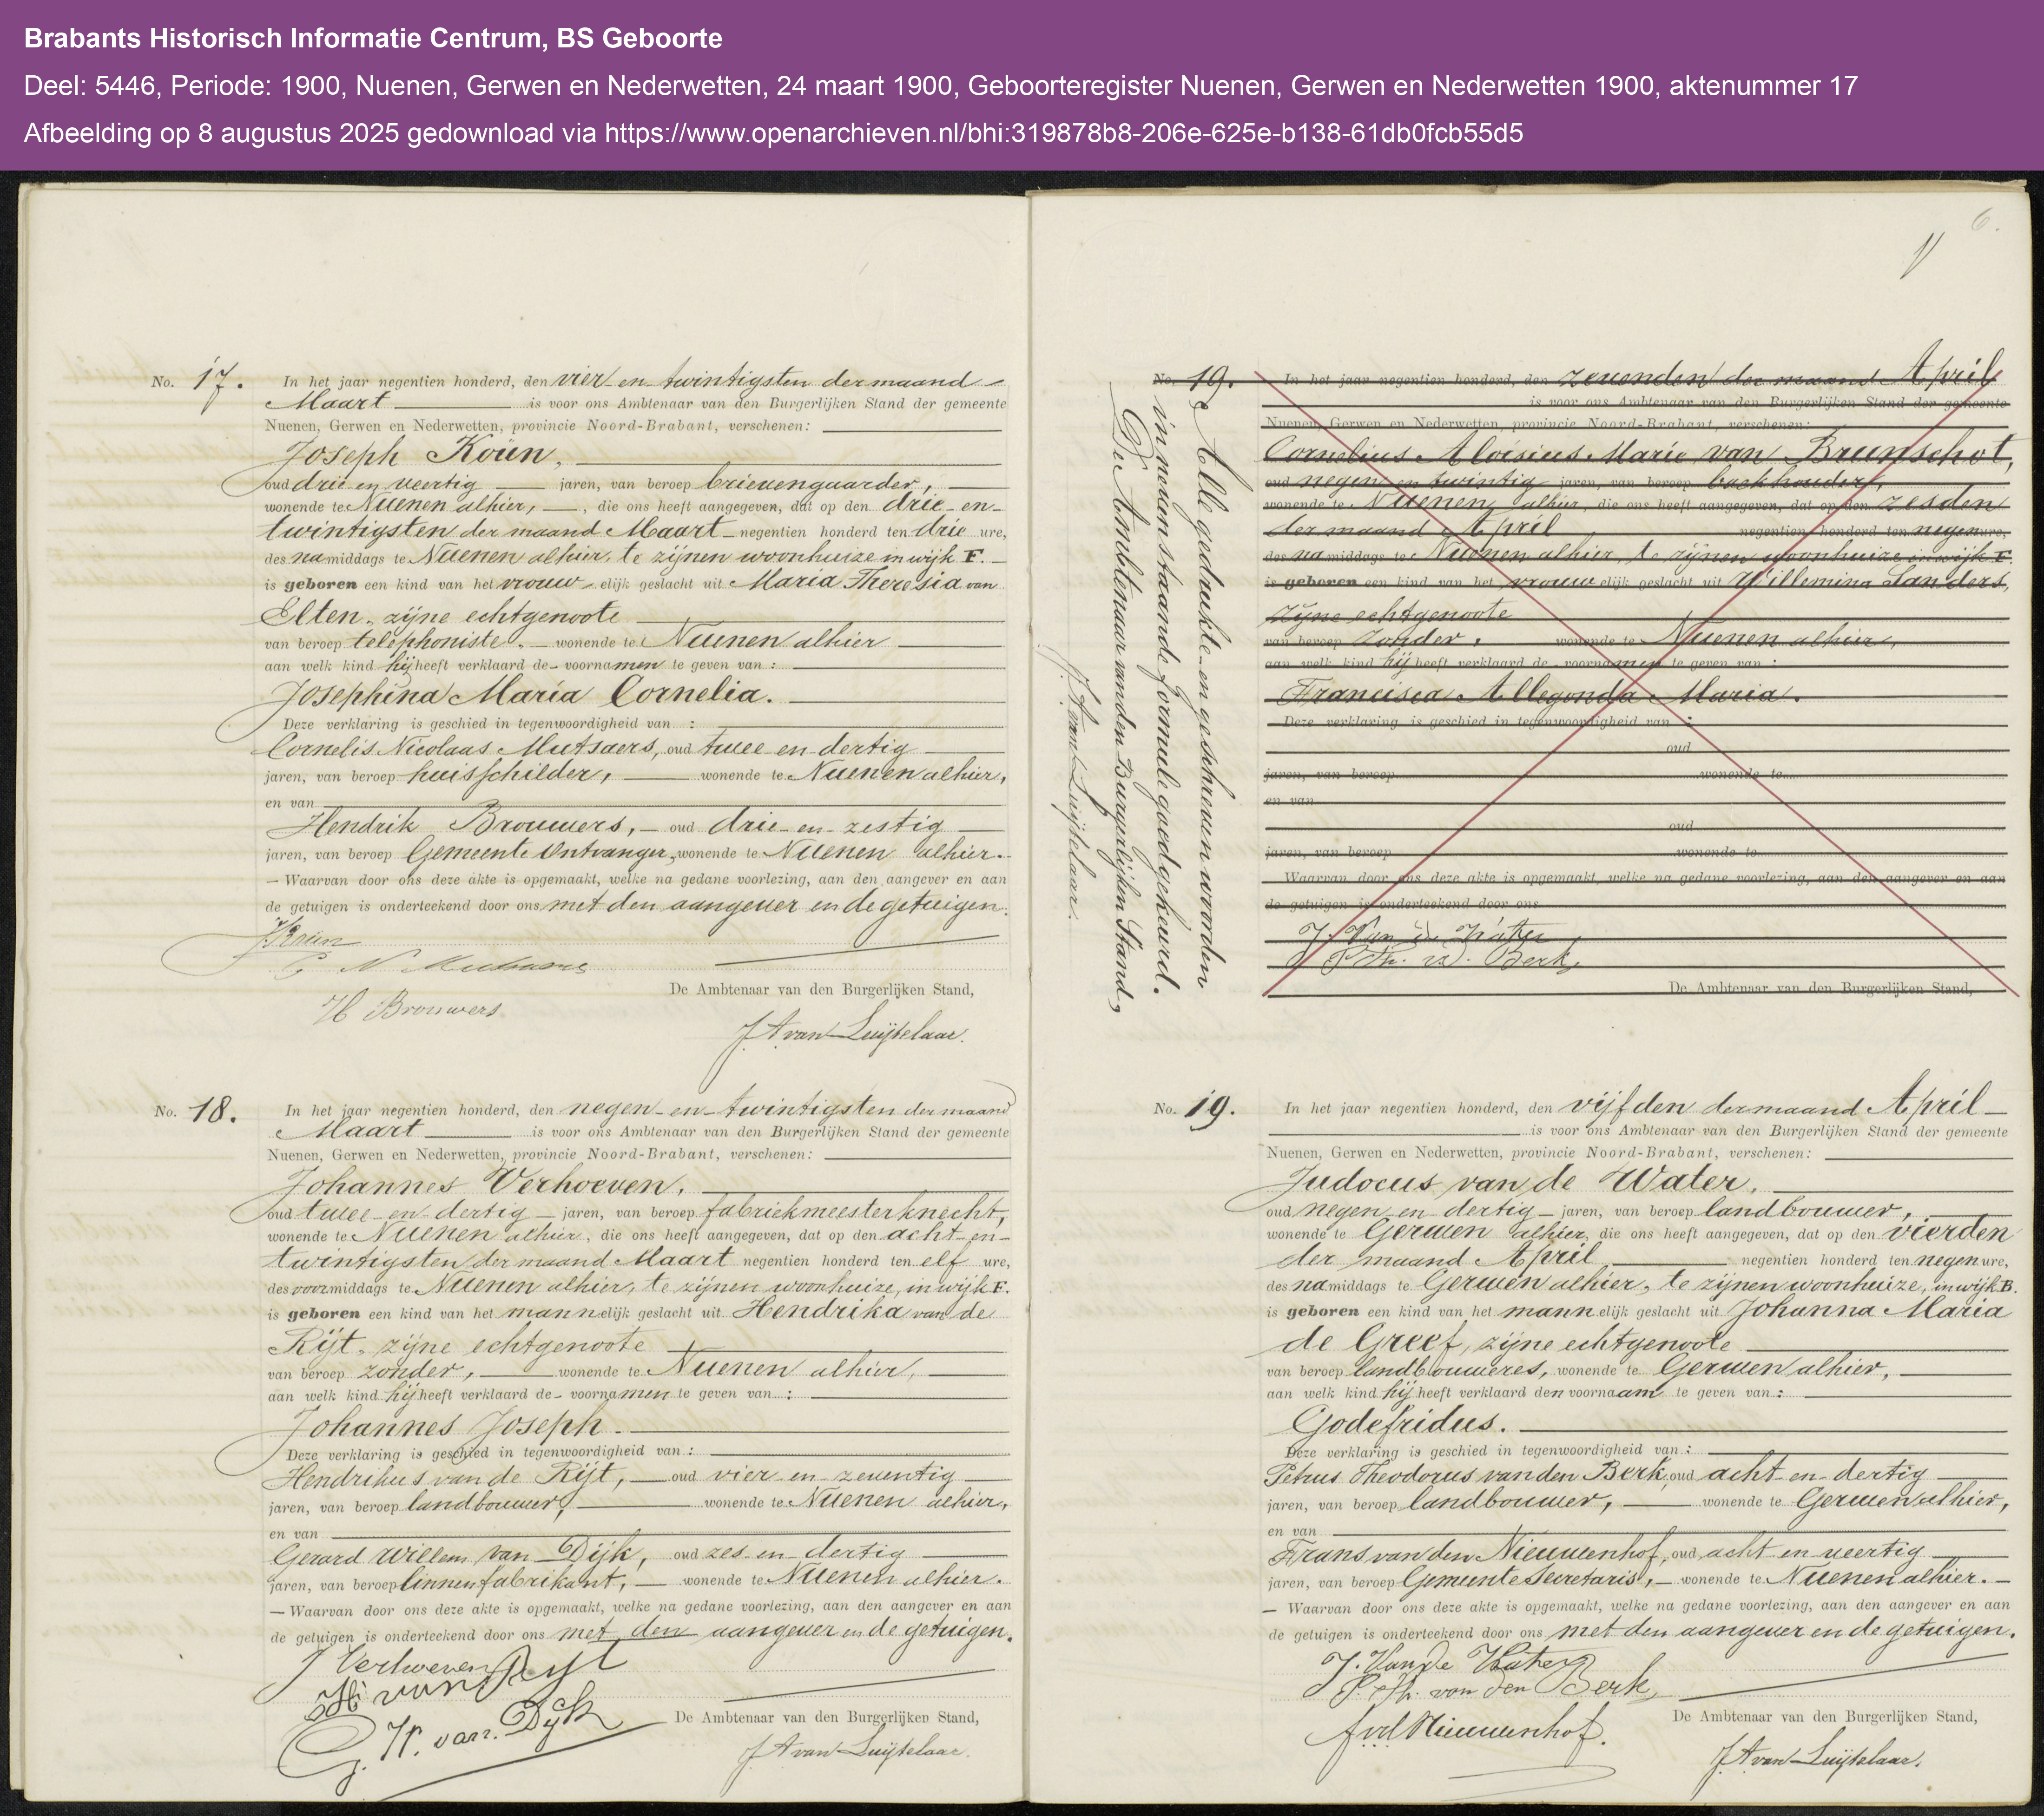 Brabants Historisch Informatie Centrum, BS Geboorte
Deel: 5446, Periode: 1900, Nuenen, Gerwen en Nederwetten, 24 maart 1900, Geboorteregister Nuenen, Gerwen en Nederwetten 1900, aktenummer 17
Afbeelding op 8 augustus 2025 gedownload via https://www.openarchieven.nl/bhi:319878b8-206e-625e-b138-61db0fcb55d5
No. 17. In het jaar negentien honderd, den vier en twintigsten der maand
Maart is voor ons Ambtenaar van den Burgerlijken Stand der gemeente
Nuenen, Gerwen en Nederwetten, provincie Noord-Brabant, verschenen:
Joseph Koün,
oud drie en veertig jaren, van beroep brievengaarder,
wonende te Nuenen alhier, die ons heeft aangegeven, dat op den drie en
twintigsten der maand Maart negentien honderd ten drie ure,
des namiddags te Nuenen alhier, te zijnen woonhuize in wijk F.
is geboren een kind van het vrouwelijk geslacht uit Maria Theresia van
Elten, zijne echtgenoote
van beroep telephoniste. wonende te Nuenen alhier
aan welk kind hij heeft verklaard de voornamen te geven van:
Josephina Maria Cornelia.
Deze verklaring is geschied in tegenwoordigheid van:
Cornelis Nicolaas Mutsaers, oud twee en dertig
jaren, van beroep huisschilder, wonende te Nuenen alhier,
en van
Hendrik Brouwers, oud drie en zestig
jaren, van beroep Gemeente Ontvanger, wonende te Nuenen alhier.
Waarvan door ons deze akte is opgemaakt, welke na gedane voorlezing, aan den aangever en aan
de getuigen is onderteekend door ons met den aangever en de getuigen.
J Koün
C N Mutsaers
H Brouwers
De Ambtenaar van den Burgerlijken Stand,
J A van Luijtelaar.
No. 18. In het jaar negentien honderd, den negen en twintigsten der maand
Maart is voor ons Ambtenaar van den Burgerlijken Stand der gemeente
Nuenen, Gerwen en Nederwetten, provincie Noord-Brabant, verschenen:
Johannes Verhoeven,
oud twee en dertig jaren, van beroep fabriekmeesterknecht,
wonende te Nuenen alhier, die ons heeft aangegeven, dat op den acht en
twintigsten der maand Maart negentien honderd ten elf ure,
des voormiddags te Nuenen alhier, te zijnen woonhuize, in wijk F.
is geboren een kind van het mannelijk geslacht uit Hendrika van de
Rijt, zijne echtgenoote
van beroep zonder, wonende te Nuenen alhier,
aan welk kind hij heeft verklaard de voornamen te geven van:
Johannes Joseph.
Deze verklaring is geschied in tegenwoordigheid van:
Hendrikus van de Rijt, oud vier en zeventig
jaren, van beroep landbouwer, wonende te Nuenen alhier,
en van
Gerard Willem van Dijk, oud zes en dertig
jaren, van beroep linnenfabrikant, wonende te Nuenen alhier.
Waarvan door ons deze akte is opgemaakt, welke na gedane voorlezing, aan den aangever en aan
de getuigen is onderteekend door ons met den aangever en de getuigen.
J Verhoeven
H van Rijt
G. W. van Dijk
De Ambtenaar van den Burgerlijken Stand,
J A van Luijtelaar.
6.
No. 19. In het jaar negentien honderd, den zevenden der maand April
is voor ons Ambtenaar van den Burgerlijken Stand der gemeente
Nuenen, Gerwen en Nederwetten, provincie Noord-Brabant, verschenen:
Cornelius Aloisius Marie van Brunschot,
oud negen en twintig jaren, van beroep boekhouder,
wonende te Nuenen alhier, die ons heeft aangegeven, dat op den zesden
der maand April negentien honderd ten negen ure,
des namiddags te Nuenen alhier, te zijnen woonhuize in wijk F
is geboren een kind van het vrouwelijk geslacht uit Willemina Sanders,
zijne echtgenoote
van beroep zonder, wonende te Nuenen alhier,
aan welk kind hij heeft verklaard de voornamen te geven van:
Francisca Allegonda Maria.
Deze verklaring is geschied in tegenwoordigheid van:
oud
jaren, van beroep wonende te
en van
oud
jaren, van beroep wonende te
Waarvan door ons deze akte is opgemaakt, welke na gedane voorlezing, aan den aangever en aan
de getuigen is onderteekend door ons
J. Van d. Water
P. Th. v. d. Berk,
De Ambtenaar van den Burgerlijken Stand,
Alle gedrukte en geschreven woorden
in nevenstaande formule goedgekeurd.
De Ambtenaar van den Burgerlijken Stand,
J A van Luijtelaar.
No. 19. In het jaar negentien honderd, den vijfden der maand April
is voor ons Ambtenaar van den Burgerlijken Stand der gemeente
Nuenen, Gerwen en Nederwetten, provincie Noord-Brabant, verschenen:
Judocus van de Water,
oud negen en dertig jaren, van beroep landbouwer,
wonende te Gerwen alhier, die ons heeft aangegeven, dat op den vierden
der maand April negentien honderd ten negen ure,
des namiddags te Gerwen alhier, te zijnen woonhuize, in wijk B.
is geboren een kind van het mannelijk geslacht uit Johanna Maria
de Greef, zijne echtgenoote
van beroep landbouweres, wonende te Gerwen alhier,
aan welk kind hij heeft verklaard den voornaam te geven van:
Godefridus.
Deze verklaring is geschied in tegenwoordigheid van:
Petrus Theodorus van den Berk, oud acht en dertig
jaren, van beroep landbouwer, wonende te Gerwen alhier,
en van
Frans van den Nieuwenhof, oud acht en veertig
jaren, van beroep Gemeente Secretaris, wonende te Nuenen alhier.
Waarvan door ons deze akte is opgemaakt, welke na gedane voorlezing, aan den aangever en aan
de getuigen is onderteekend door ons met den aangever en de getuigen.
J. Van de Water
P. Th. van den Berk,
F vd Nieuwenhof.
De Ambtenaar van den Burgerlijken Stand,
J A van Luijtelaar.